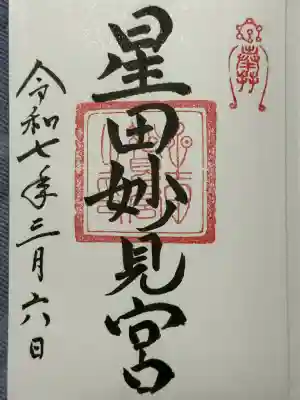 星田妙見宮
令和七年三月六日